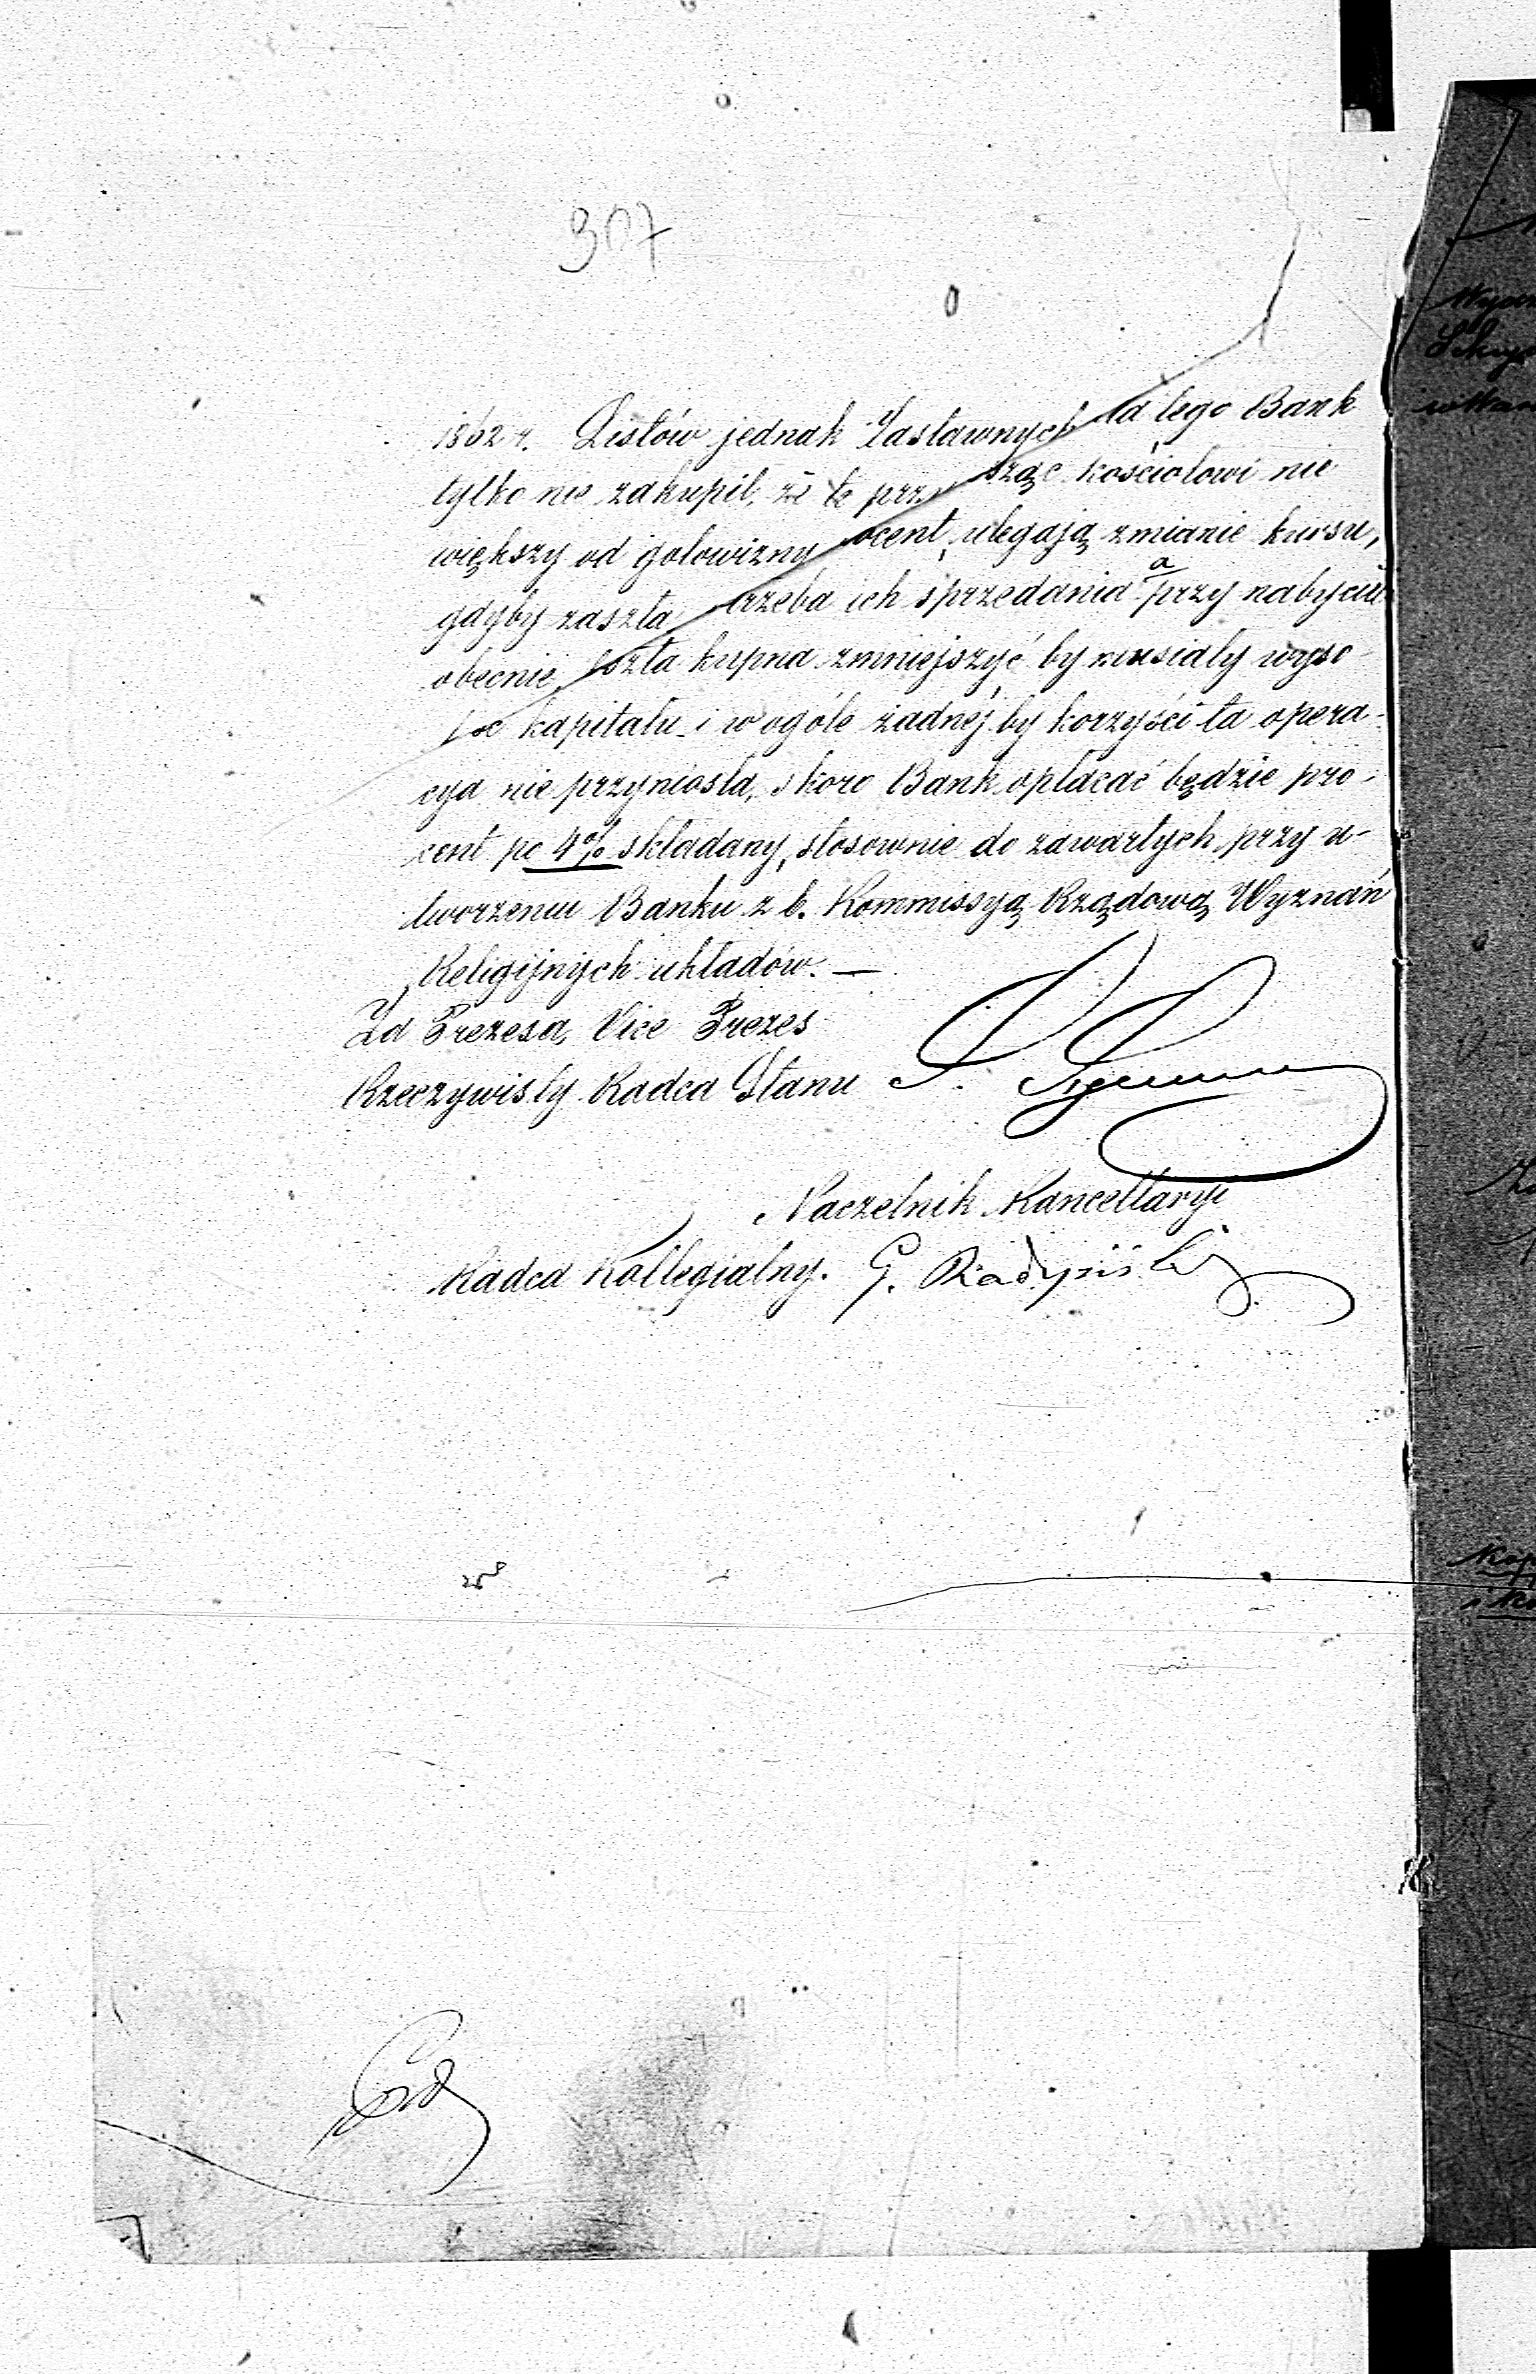 307
1862 r. Listów jednak Zastawnych dla tego Bank
tylko nie zakupił, że te przy sząc kościołowi nie
większy od gotowizny ocent, ulegają zmianie kursu,
gdyby zaszła trzeba ich sprzedania a przy nabyciu
obecnie szta kupna zmniejszyć by musiały wyso-
kapitału i w ogóle żadnéj by korzyści ta opera-
cya nie przyniosła, skoro Bank opłacać będzie pro-
cent po 4% składany, stosownie do zawartych przy u-
tworzeniu Banku z b. Kommissyą Rządową Wyznań
Religijnych układów. —
Za Prezesa, Vice Prezes
Rzeczywisty Radca Stanu
Naczelnik Kancellaryi
Radca Kollegialny. G.